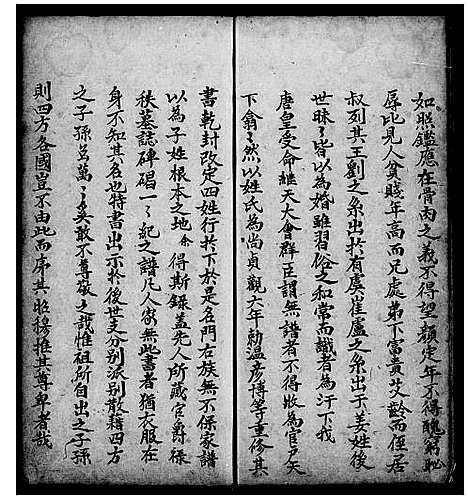 如照鑑應在骨肉之義不得望顏定年不得醜窮恥
辱比見人貧賤年高而兄處弟下富貴艾齡而侄居
叔列其王劉之系出於有虞崔盧之系出于姜姓後
世昧〻皆以為婚雖習俗之和常而識者為汗下我
唐皇受命繼天大會群臣謂無譜者不得收為官天
下翕〻然以姓氏為尚貞觀六年勅溫彥博等重修其
書乾封改定四姓行於下於是名門右族無不保家譜
以為子姓根本之地余得斯錄蓋先人所藏官爵祿
秩墓誌碑碣一〻紀之譜凡人家無此書者猶衣服在
身不知其名也特書出示於後世支分別派別散籍四方
之子孫茗萬〻矣敢不尊敬之哉惟祖所自出之子孫
則四方各國豈不由此而序其昭穆推其尊卑者哉